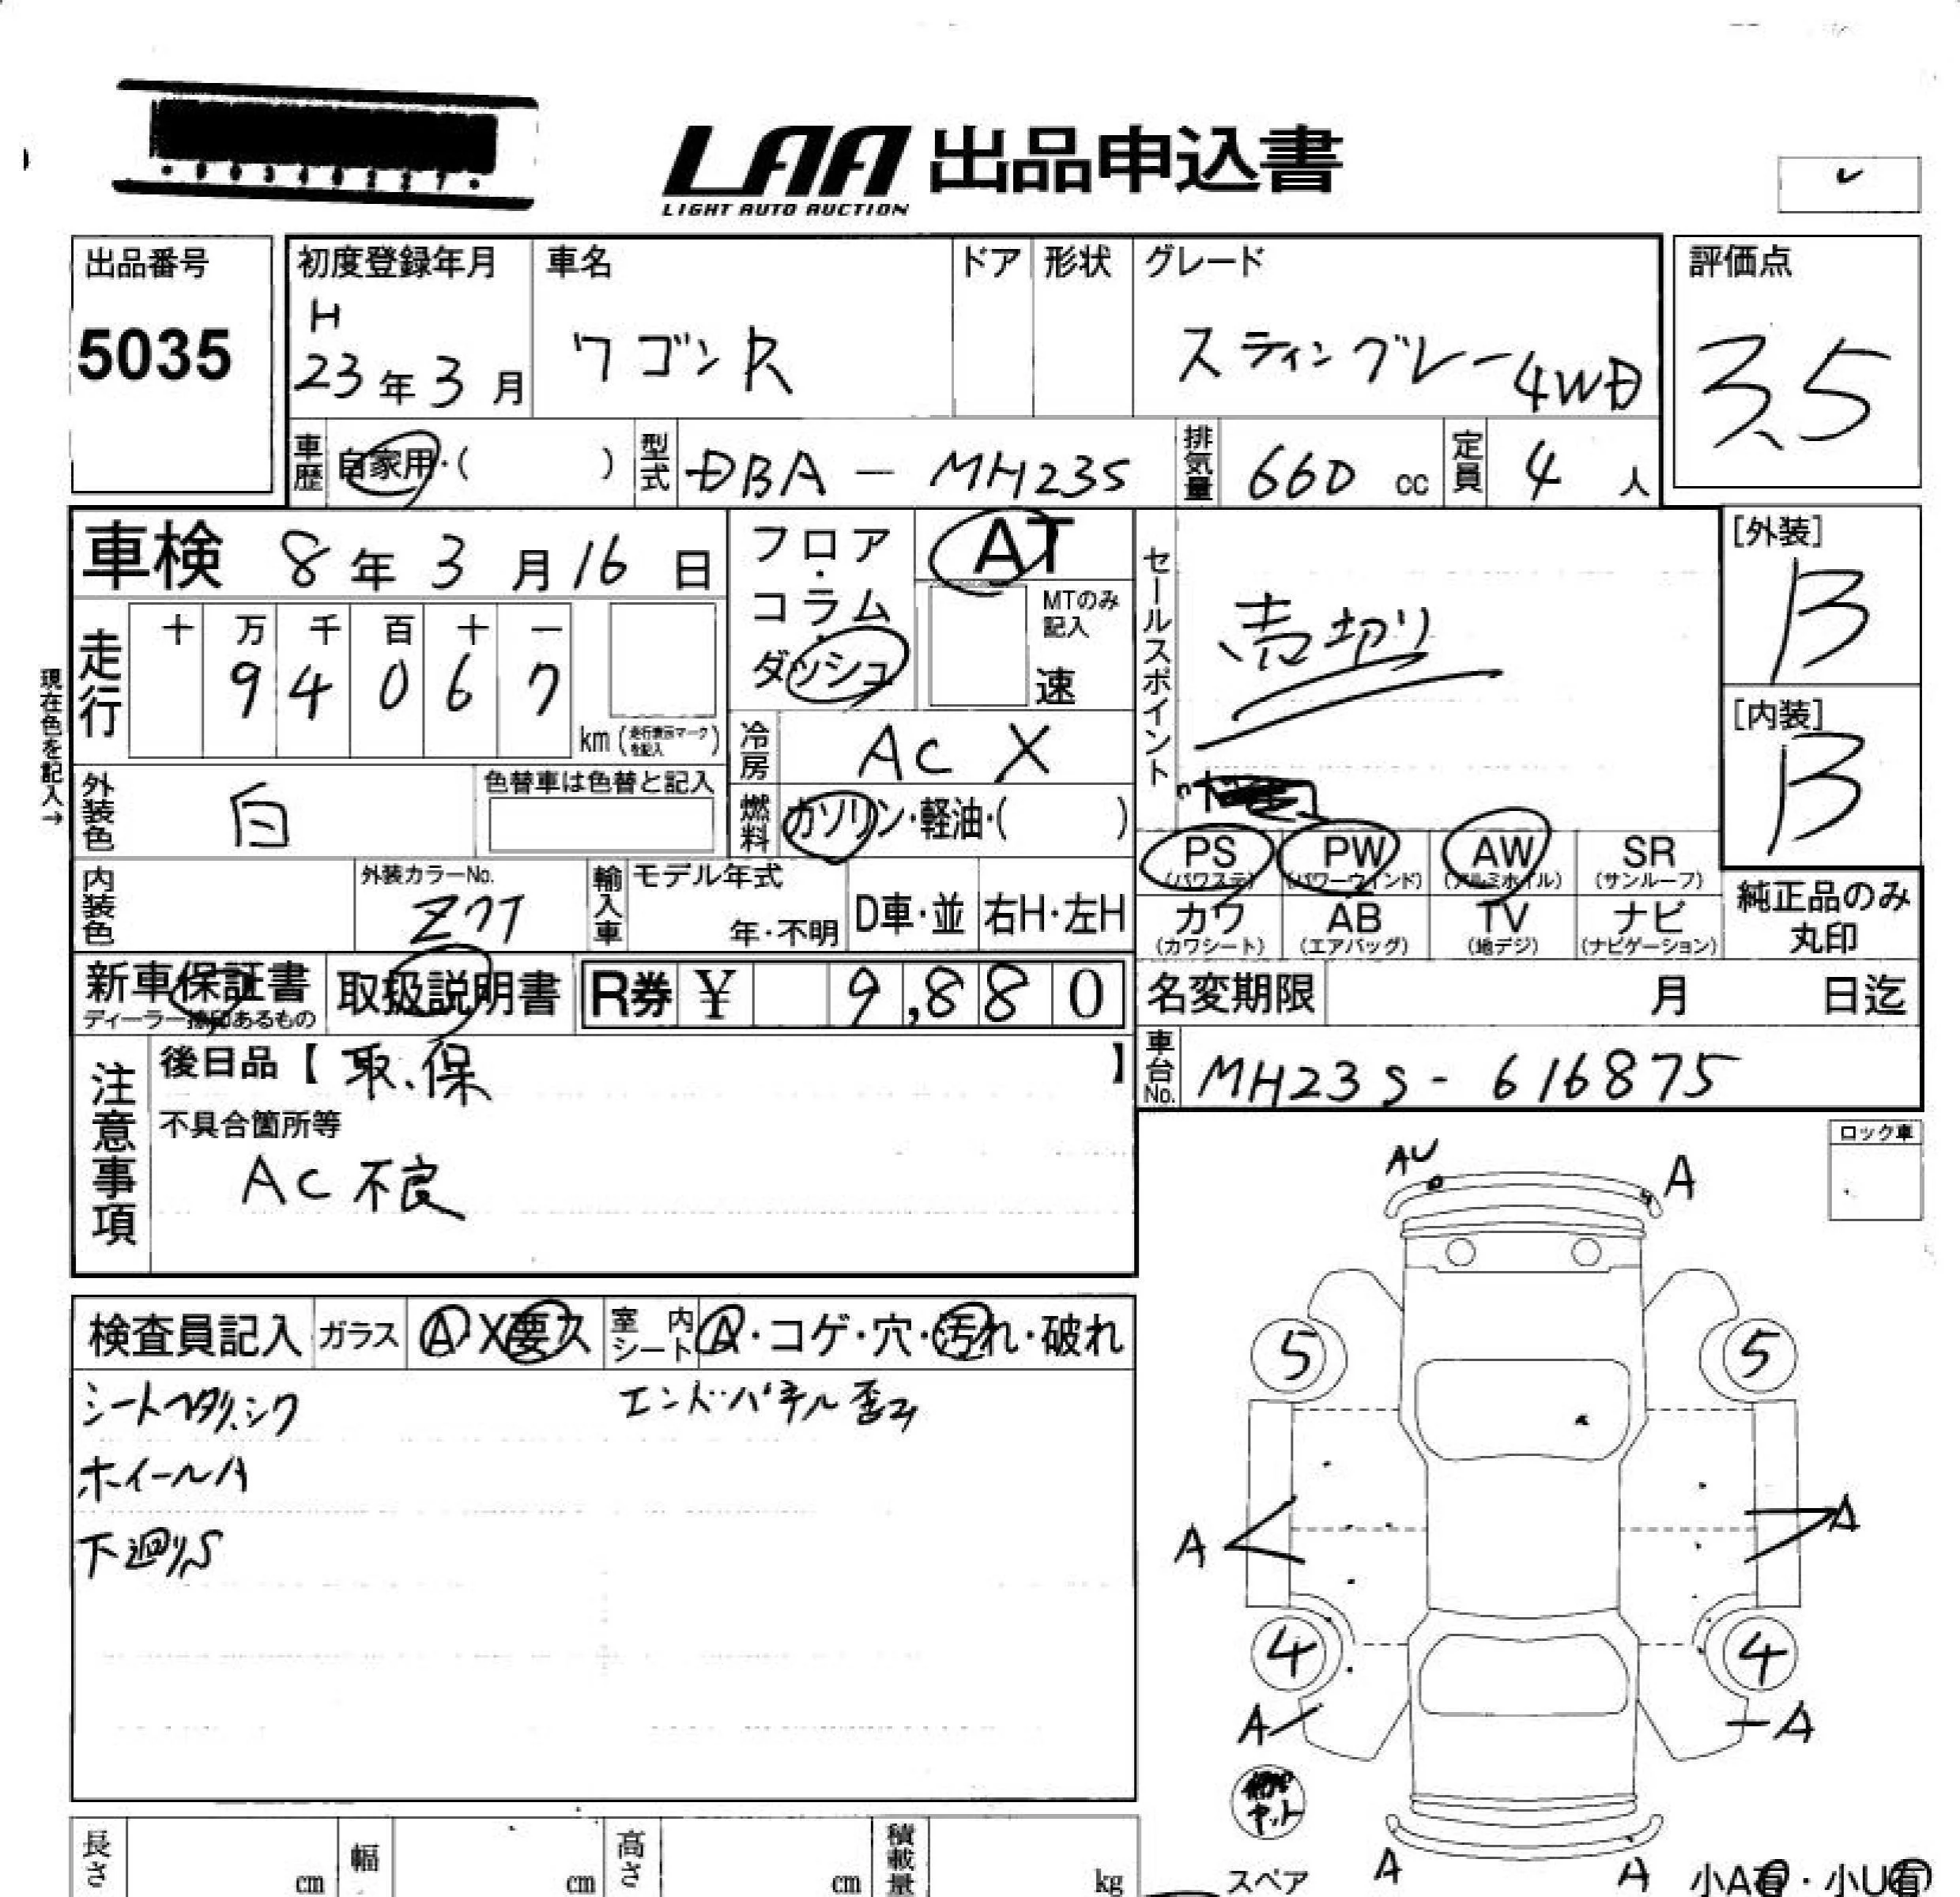 LAA 出品申込書
LIGHT AUTO AUCTION
出品番号
5035
初度登録年月
H
23年3月
車名
ワゴンR
ドア
形状
グレード
スティングレー4WD
評価点
3.5
車歴
自家用・( )
型式
DBA-MH23S
排気量
660 cc
定員
4人
車検 8年3月16日
フロア・コラム・ダッシュ
AT
MTのみ記入
速
セールスポイント
売切り
[外装]
B
[内装]
B
現在色を記入→
走行
十 万 千 百 十 一
9 4 0 6 7
km (走行表示マークを記入)
冷房
AC X
燃料
ガソリン・軽油・( )
外装色
白
色替車は色替と記入
PS (パワステ)
PW (パワーウィンド)
AW (アルミホイル)
SR (サンルーフ)
カワ (カワシート)
AB (エアバッグ)
TV (地デジ)
ナビ (ナビゲーション)
純正品のみ丸印
内装色
外装カラーNo.
Z7T
輸入車
モデル年式
年・不明
D車・並
右H・左H
新車保証書
ディーラー捺印あるもの
取扱説明書
R券 ¥ 9,880
名変期限 月 日迄
車台No.
MH23S-616875
注意事項
後日品【取.保】
不具合箇所等
AC不良
ロック車
AU
A
検査員記入
ガラス
A X 要ス
室内シート
A・コゲ・穴・汚れ・破れ
シートヘタリ、シワ
エンドパネル歪み
ホイールA
下廻りS
5 5
A A
4 4
A A
キット
スペア
A A
小A有・小U有
長さ cm
幅 cm
高さ cm
積載量 kg